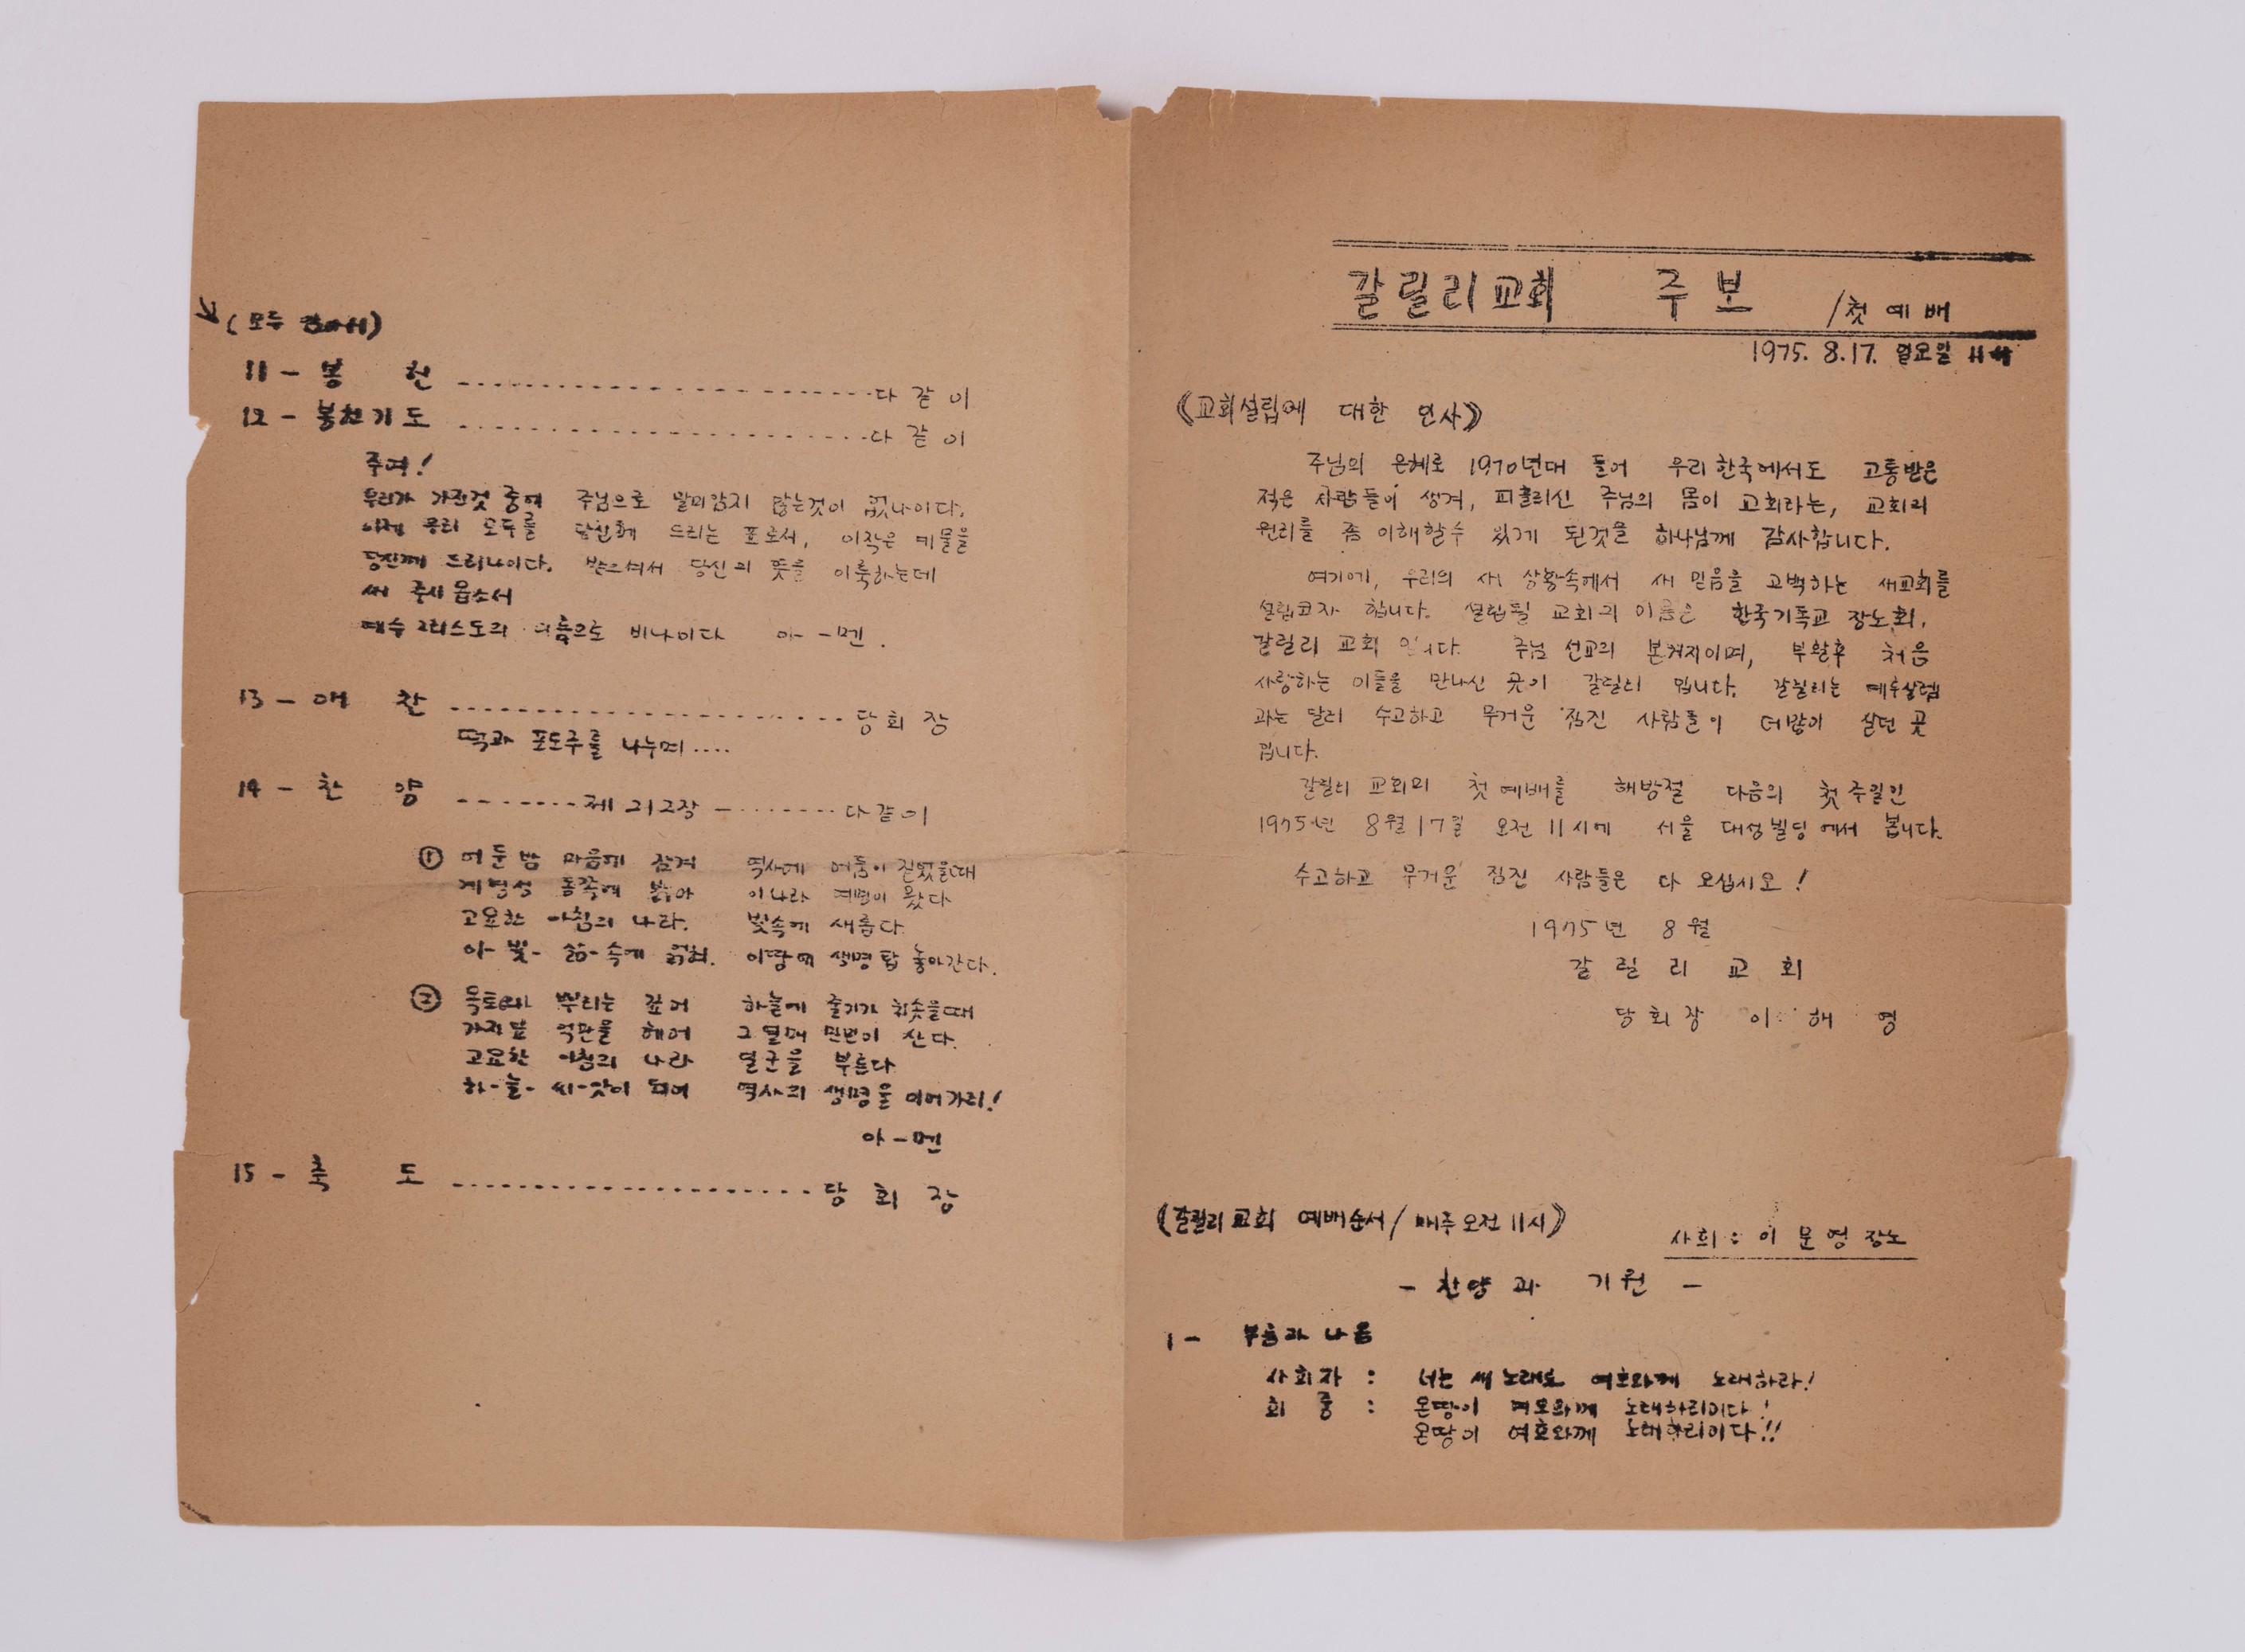 (모두 앉아서)
11 - 봉 헌 ........................ 다 같 이
12 - 봉헌기도 ........................ 다 같 이
주여!
우리가 가진것 중에 주님으로 말미암지 않는것이 없나이다.
이제 우리 모두를 당신께 드리는 표로서, 이작은 예물을
당신께 드리나이다. 받으셔서 당신의 뜻을 이룩하는데
써 주시옵소서
예수 그리스도의 이름으로 비나이다 아--멘.
13 - 애 찬 ........................ 당 회 장
떡과 포도주를 나누며....
14 - 찬 양 -------- 제 212장 -------- 다 같 이
① 어둔밤 마음에 잠겨 역사에 어둠이 짙었을때
계명성 동쪽에 밝아 이나라 여명이 왔다
고요한 아침의 나라. 빛속에 새롭다.
아- 빛- 삶- 속에 얽혀. 이땅에 생명탑 놓아간다.
② 옥토에 뿌리는 깊어 하늘에 줄기가 치솟을때
가지잎 억만을 헤어 그 열매 만민이 산다.
고요한 아침의 나라 일군을 부른다
하-늘- 씨-앗이 되어 역사의 생명을 이어가리!
아-멘
15 - 축 도 ........................ 당 회 장
갈릴리교회 주보 /첫예배
1975. 8.17. 일요일 11시
《교회설립에 대한 인사》
주님의 은혜로 1970년대 들어 우리 한국에서도 고통받은
적은 사람들이 생겨, 피흘리신 주님의 몸이 교회라는, 교회의
원리를 좀 이해할수 있게 된것을 하나님께 감사합니다.
여기에, 우리의 새 상황속에서 새 믿음을 고백하는 새교회를
설립코자 합니다. 설립될 교회의 이름은 한국기독교 장노회.
갈릴리 교회 입니다. 주님 선교의 본거지이며, 부활후 처음
사랑하는 이들을 만나신 곳이 갈릴리 입니다. 갈릴리는 예루살렘
과는 달리 수고하고 무거운 짐진 사람들이 더많이 살던 곳
입니다.
갈릴리 교회의 첫 예배를 해방절 다음의 첫 주일인
1975년 8월 17일 오전 11시에 서울 대성빌딩에서 봅니다.
수고하고 무거운 짐진 사람들은 다 오십시오!
1975년 8월
갈 릴 리 교 회
당 회 장 이 해 영
《갈릴리교회 예배순서 / 매주오전 11시》
사회 : 이 문 영 장노
- 찬양과 기원 -
1 - 부름과 나옴
사회자 : 너는 새 노래로 여호와께 노래하라!
회 중 : 온땅이 여호와께 노래하리이다!
온땅이 여호와께 노래하리이다!!